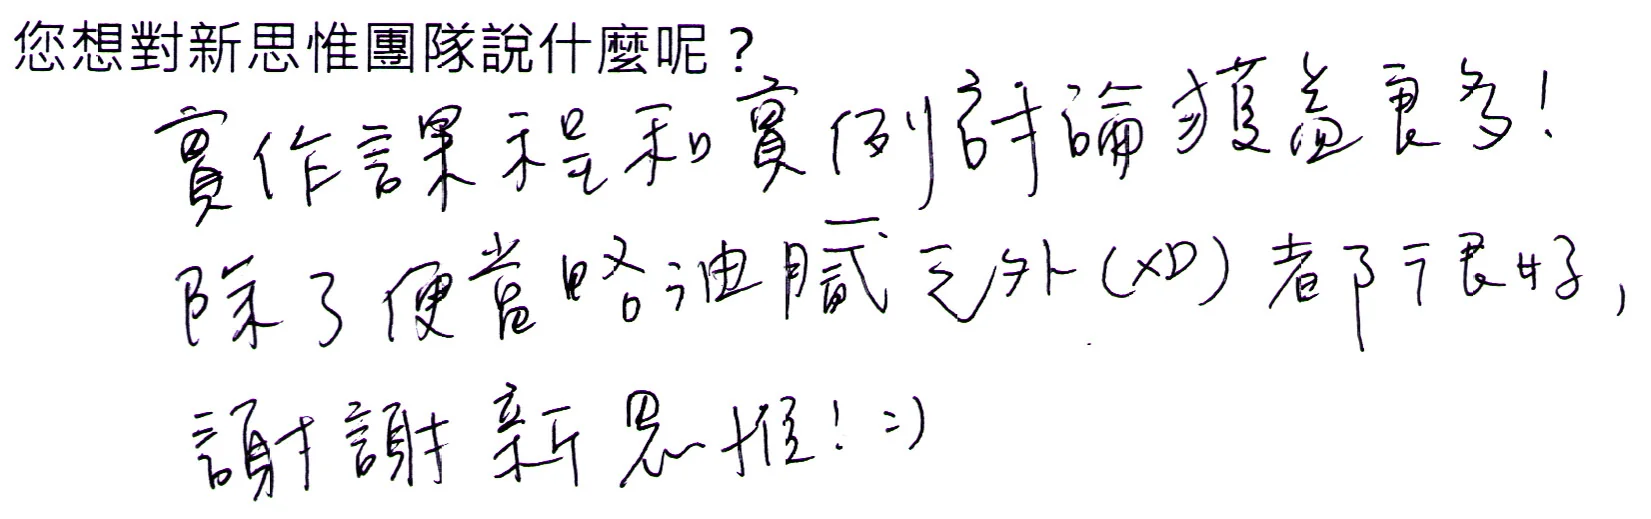 您想對新思惟團隊說什麼呢？
實作課程和實例討論獲益良多！
除了便當略油膩之外(XD)都很好，
謝謝新思惟！:)